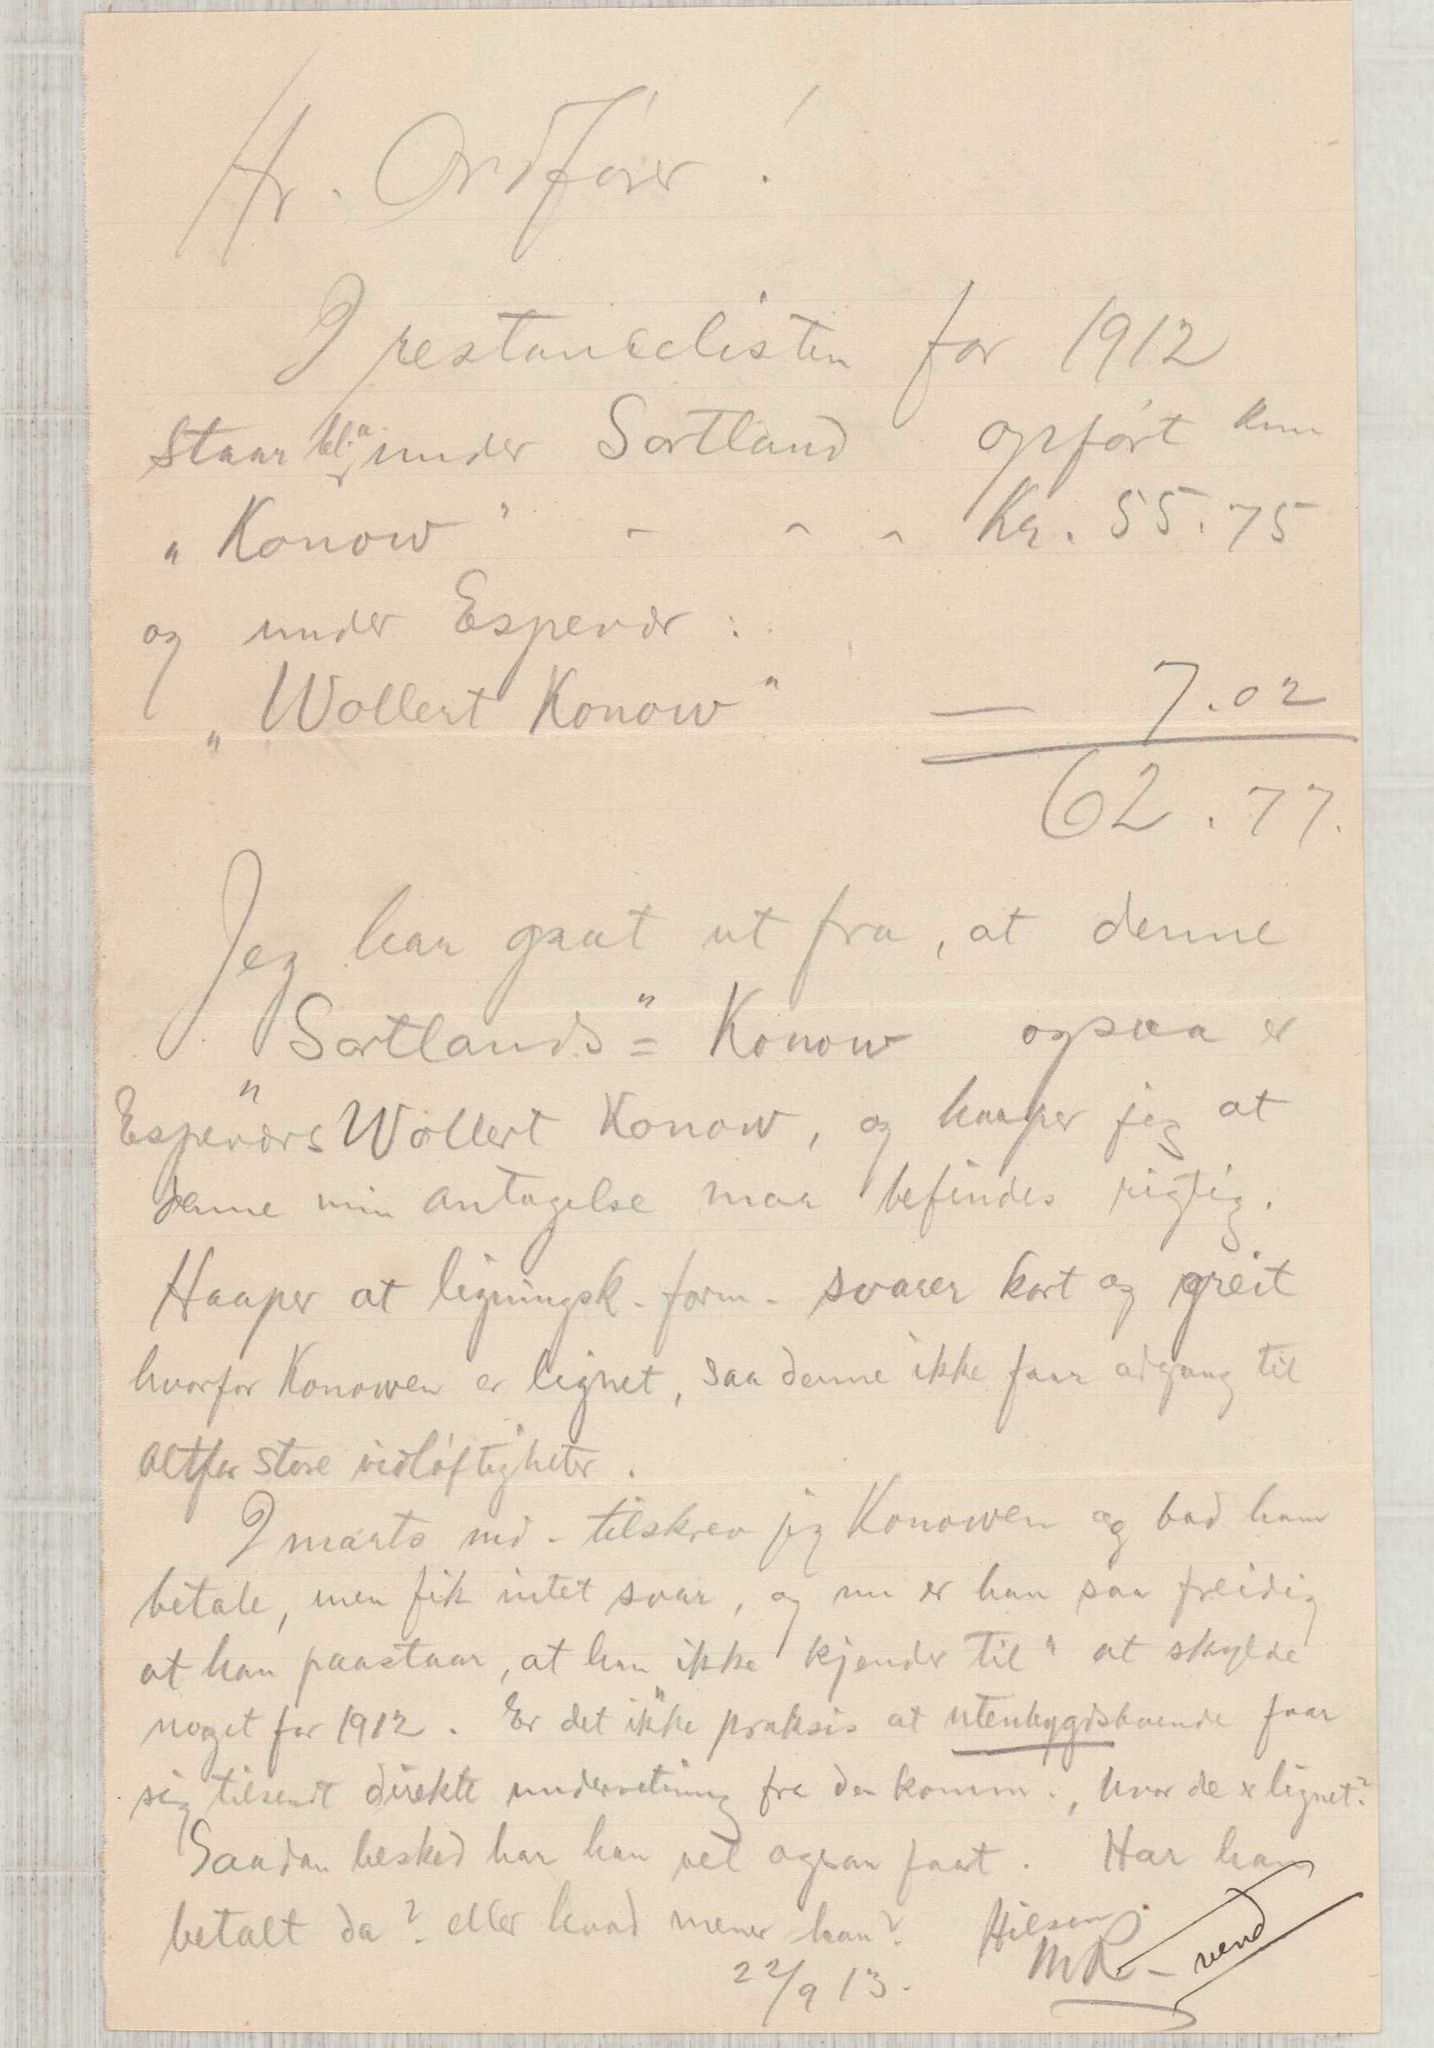 Hr. Ordfører!
I restancelisten for 1912
staar bl. a. under Sortland opført kun
"Konow" - - - Kr. 55.75
og under Espevær:
"Wollert Konow" — 7.02
62.77.
Jeg har gaat ut fra, at denne
"Sortlands"= Konow ogsaa er
Espeværs Wollert Konow, og haaper jeg at
denne min antagelse maa befindes rigtig.
Haaper at ligningsk. form. svarer kort og greit
hvorfor Konowen er lignet, saa denne ikke faar adgang til
altfor store vidløftigheter.
I marts md. tilskrev jeg Konowen og bad ham
betale, men fik intet svar, og nu er han saa freidig
at han paastaar, at han ikke "kjender til" at skylde
noget for 1912. Er det ikke praksis at utenbygdsboende faar
sig tilsendt direkte underretning fra den komm., hvor de er lignet?
Saadan besked har han vel ogsaa faat. Har han
betalt da? eller hvad mener han? Hilsen
22/9 13. MR- vend